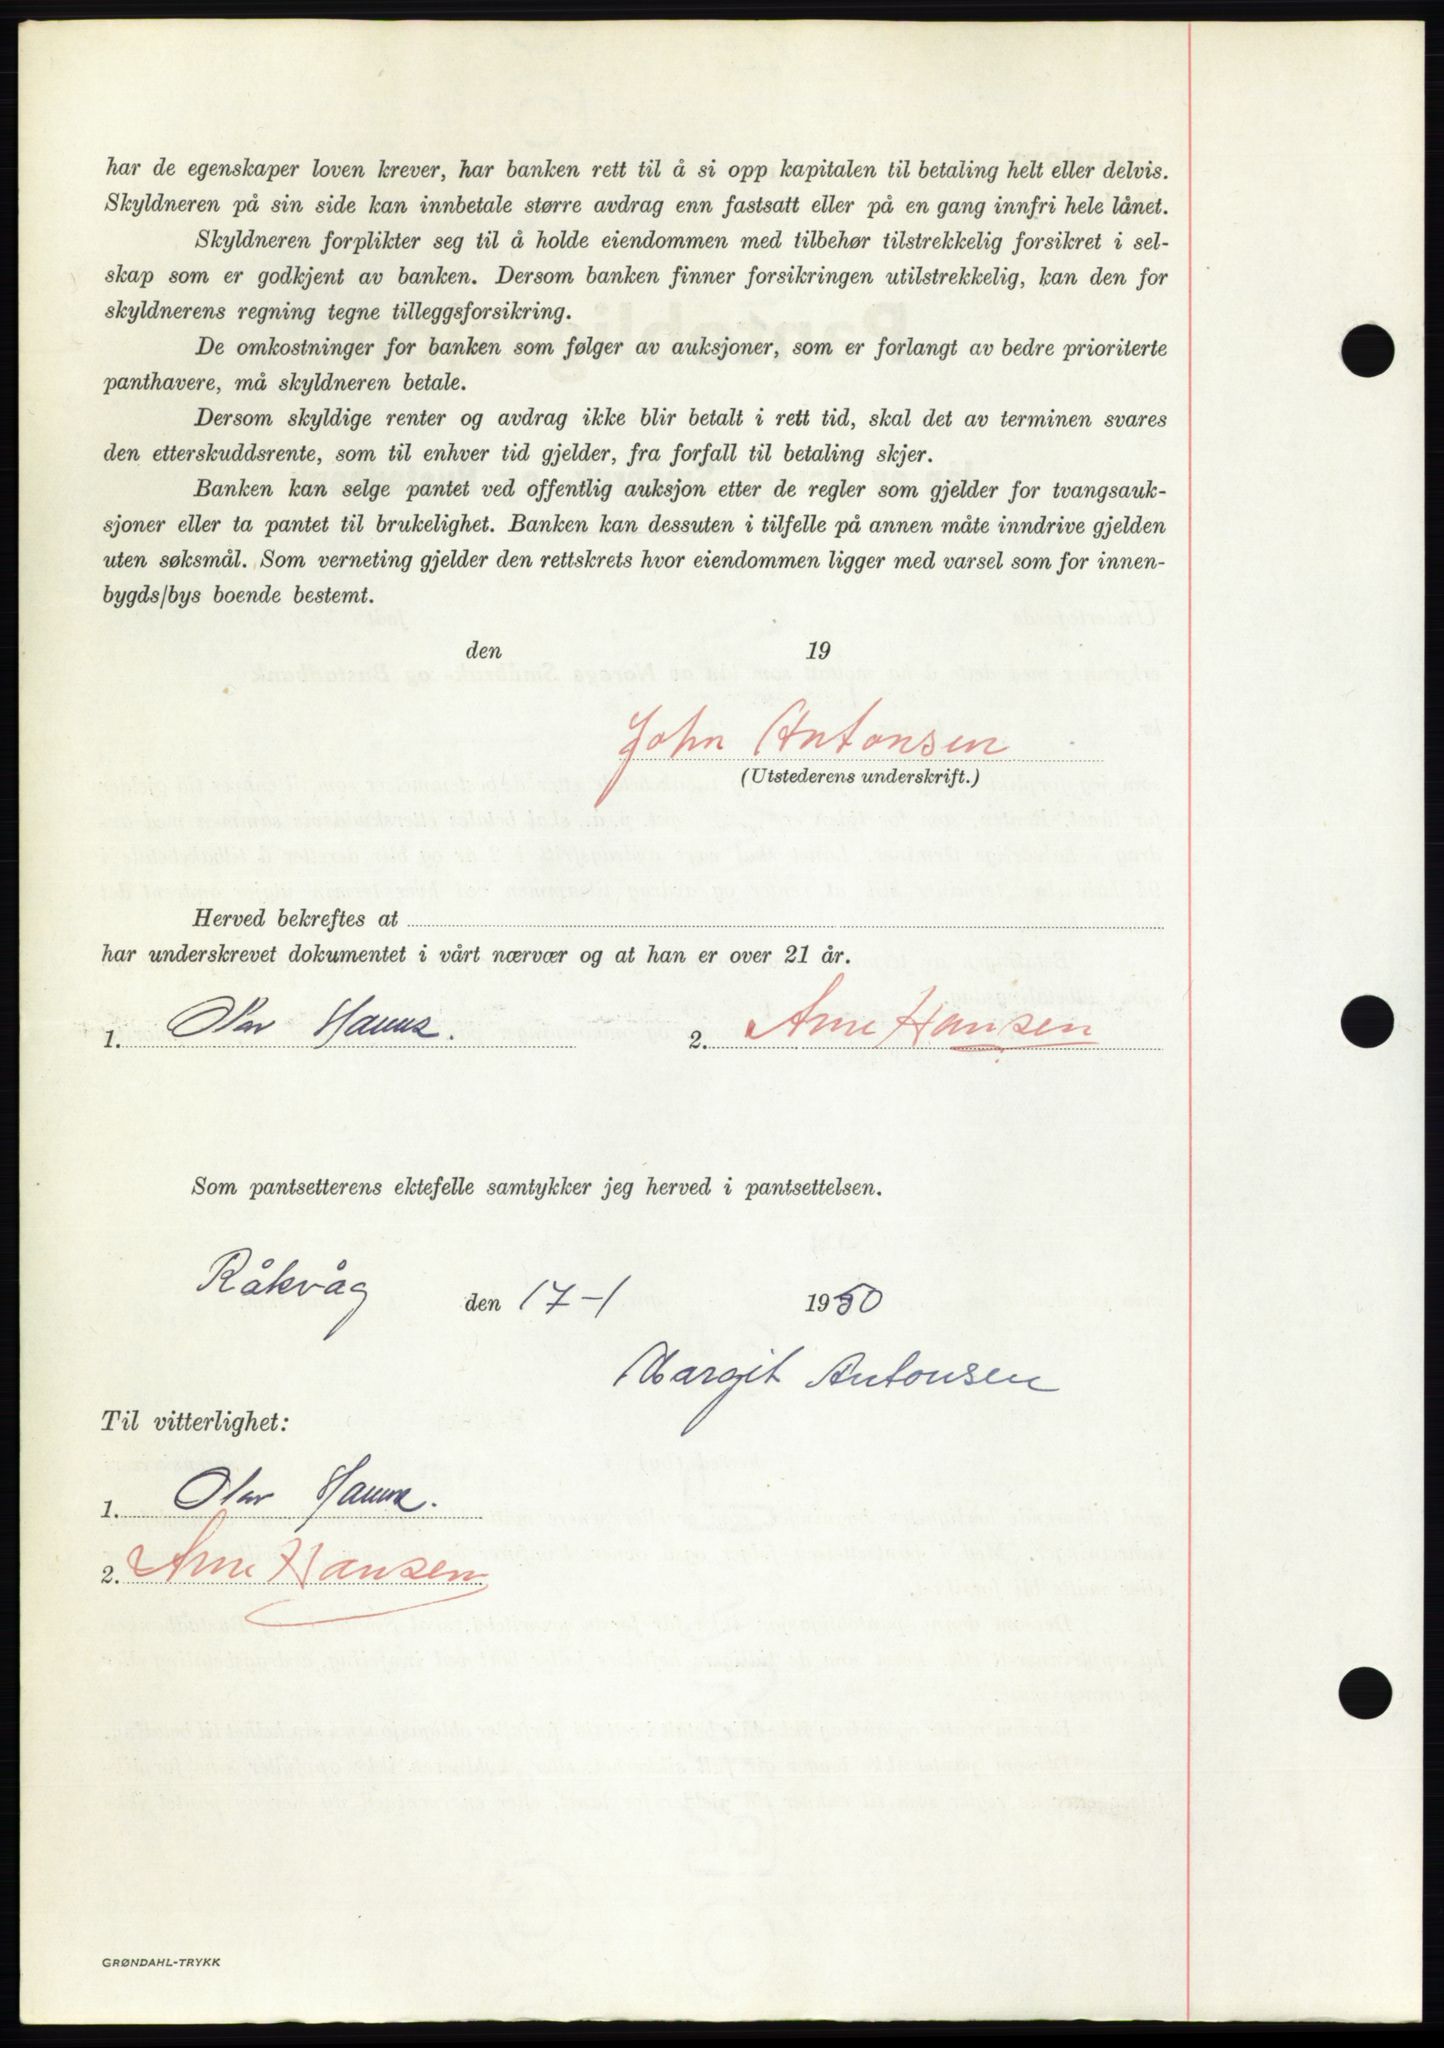 har de egenskaper loven krever, har banken rett til å si opp kapitalen til betaling helt eller delvis.
Skyldneren på sin side kan innbetale større avdrag enn fastsatt eller på en gang innfri hele lånet.
Skyldneren forplikter seg til å holde eiendommen med tilbehør tilstrekkelig forsikret i sel-
skap som er godkjent av banken. Dersom banken finner forsikringen utilstrekkelig, kan den for
skyldnerens regning tegne tilleggsforsikring.
De omkostninger for banken som følger av auksjoner, som er forlangt av bedre prioriterte
panthavere, må skyldneren betale.
Dersom skyldige renter og avdrag ikke blir betalt i rett tid, skal det av terminen svares
den etterskuddsrente, som til enhver tid gjelder, fra forfall til betaling skjer.
Banken kan selge pantet ved offentlig auksjon etter de regler som gjelder for tvangsauk-
sjoner eller ta pantet til brukelighet. Banken kan dessuten i tilfelle på annen måte inndrive gjelden
uten søksmål. Som verneting gjelder den rettskrets hvor eiendommen ligger med varsel som for innen-
bygds/bys boende bestemt.
den 19
John Antonsen
(Utstederens underskrift.)
Herved bekreftes at
har underskrevet dokumentet i vårt nærvær og at han er over 21 år.
1. 2. Arne Hansen
Som pantsetterens ektefelle samtykker jeg herved i pantsettelsen.
Råkvåg den 17-1 1950
Margit Antonsen
Til vitterlighet:
1.
2. Arne Hansen
GRØNDAHL-TRYKK